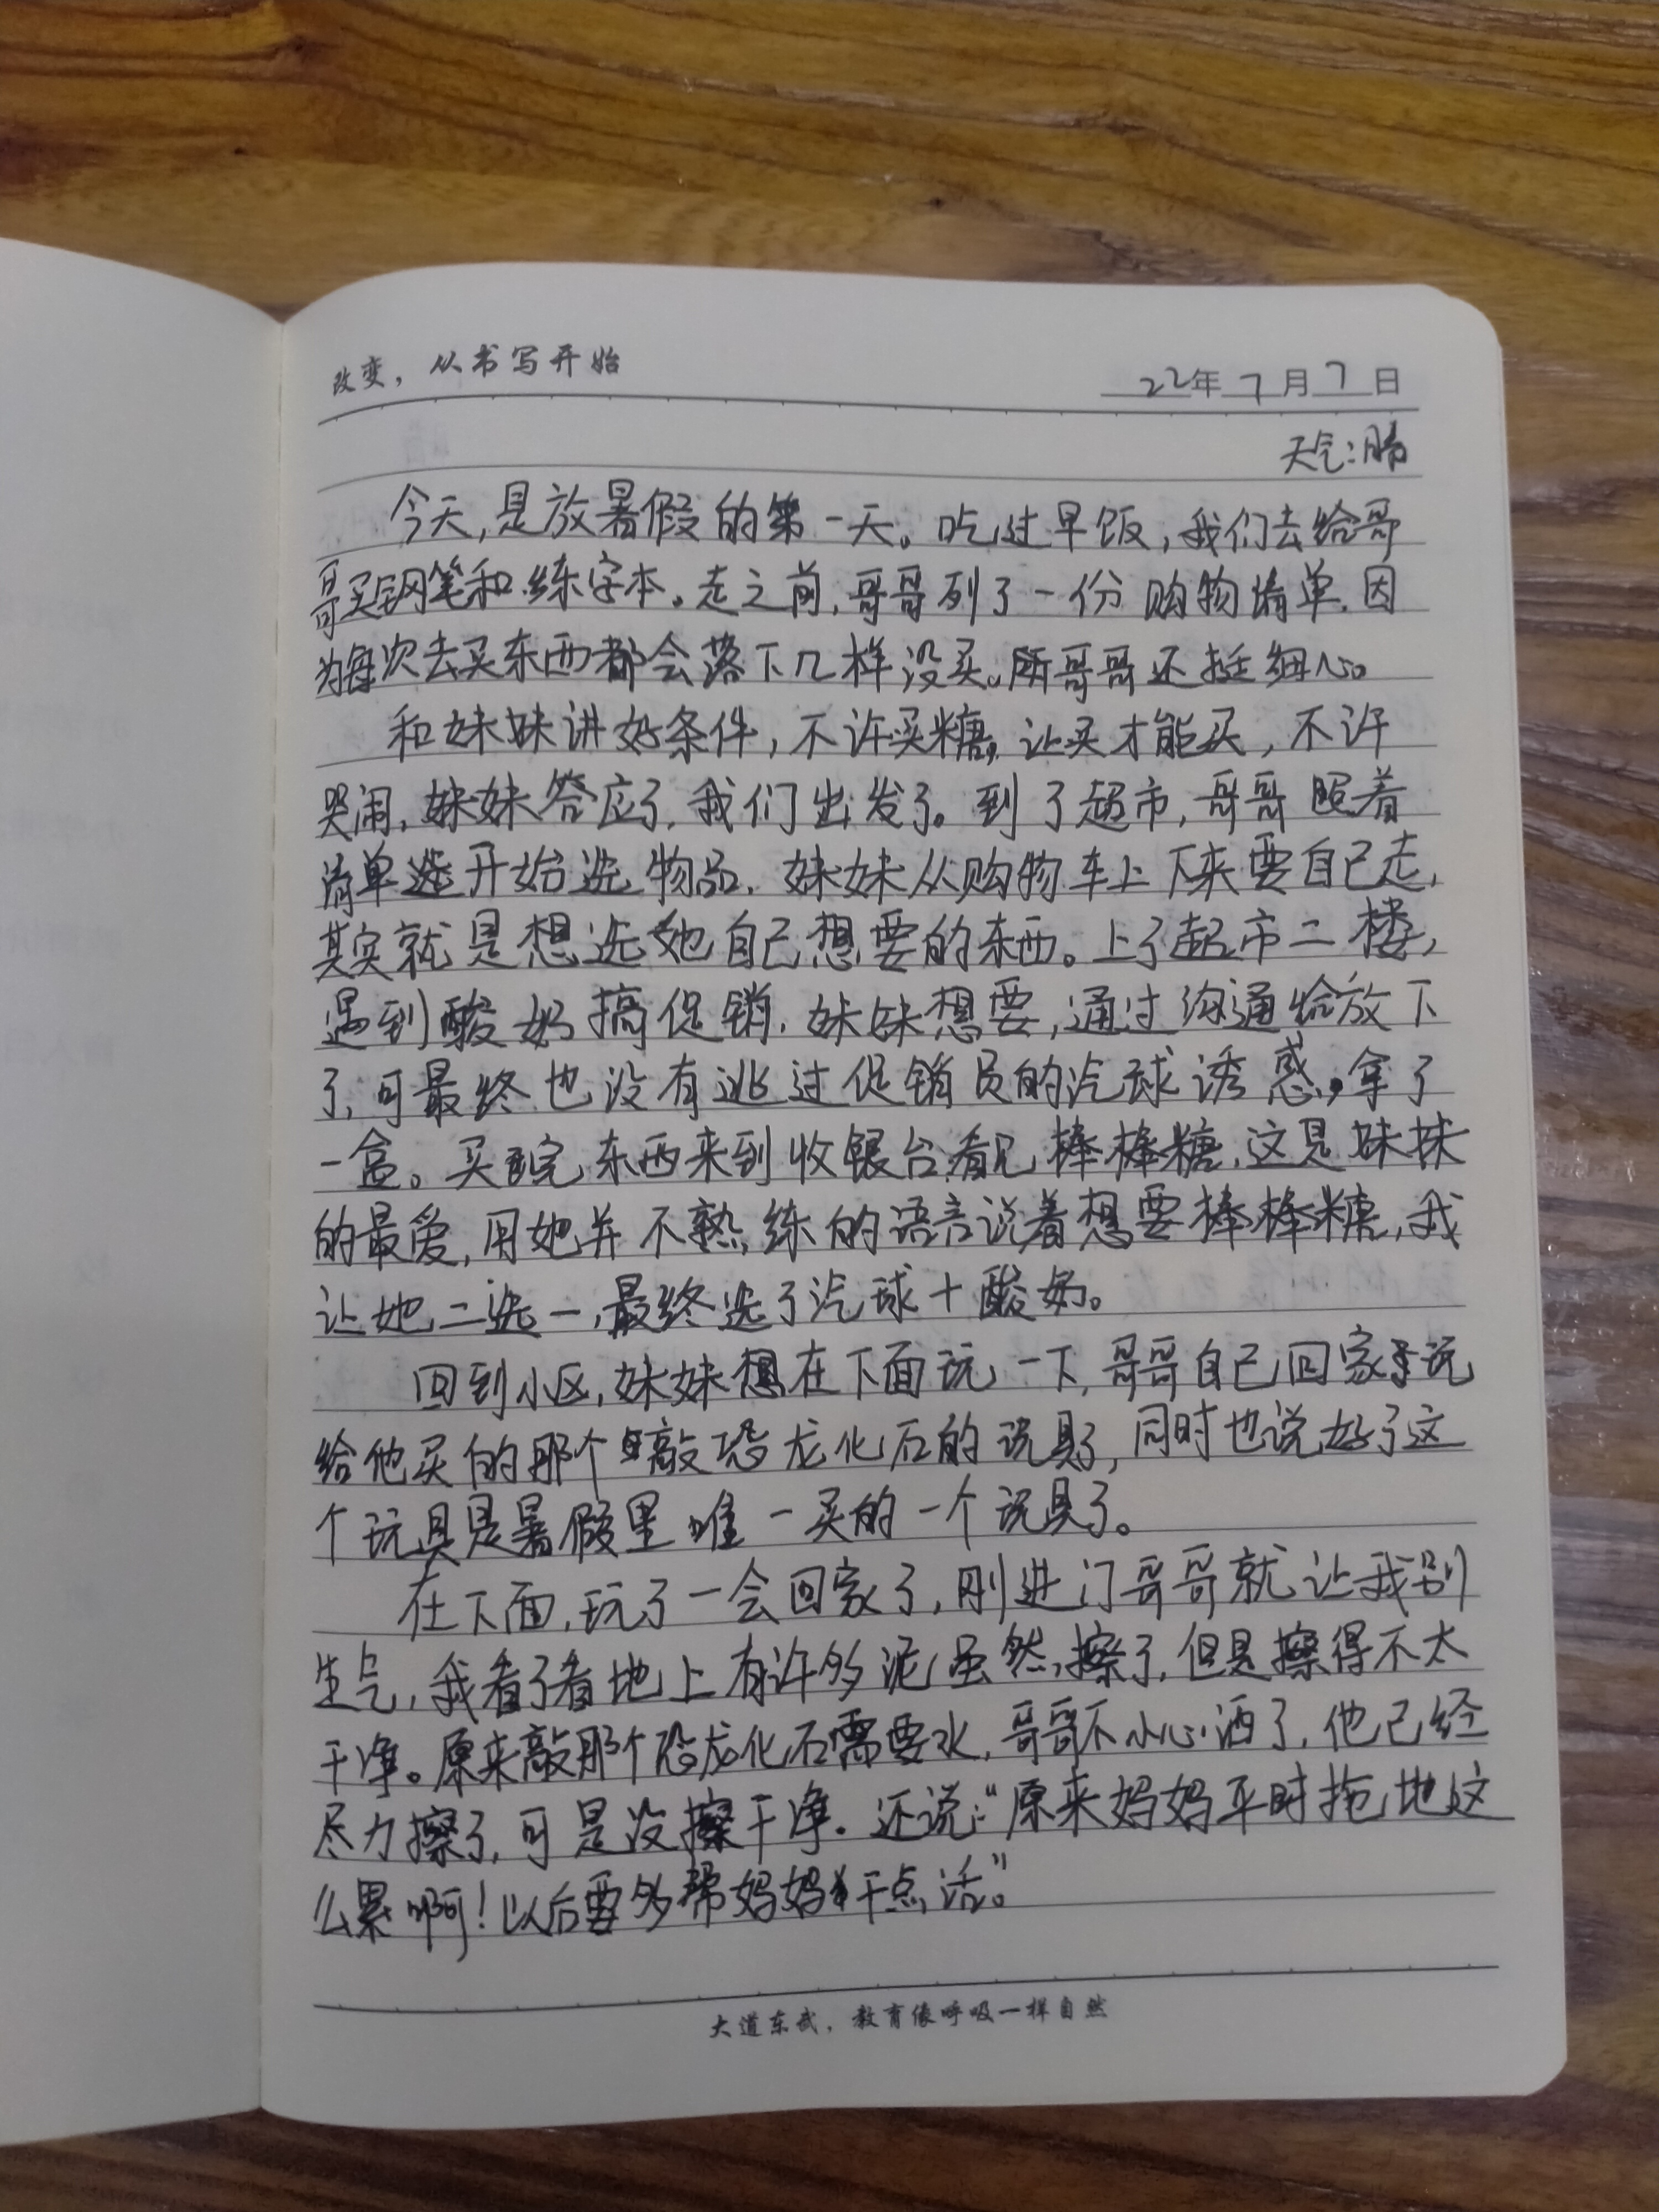 改变，从书写开始
22年7月7日
天气：晴
今天，是放暑假的第一天。吃过早饭，我们去给哥
哥买钢笔和练字本。走之前，哥哥列了一份购物清单，因
为每次去买东西都会落下几样没买。所哥哥还挺细心。
和妹妹讲好条件，不许买糖，让买才能买，不许
哭闹，妹妹答应了，我们出发了。到了超市，哥哥照着
清单选开始选物品，妹妹从购物车上下来要自己走，
其实就是想选她自己想要的东西。上了超市二楼，
遇到酸奶搞促销，妹妹想要，通过沟通给放下
了，可最终也没有逃过促销员的汽球诱惑，拿了
一盒。买完东西来到收银台看见棒棒糖，这是妹妹
的最爱，用她并不熟练的语言说着想要棒棒糖，我
让她二选一，最终选了汽球+酸奶。
回到小区，妹妹想在下面玩一下，哥哥自己回家玩
给他买的那个敲恐龙化石的玩具了，同时也说好了这
个玩具是暑假里唯一买的一个玩具了。
在下面，玩了一会回家了，刚进门哥哥就让我别
生气，我看了看地上有许多泥，虽然擦了，但是擦得不太
干净。原来敲那个恐龙化石需要水，哥哥不小心洒了，他已经
尽力擦了，可是没擦干净。还说：“原来妈妈平时拖地这
么累啊！以后要多帮妈妈干点活。”
大道东武，教育像呼吸一样自然